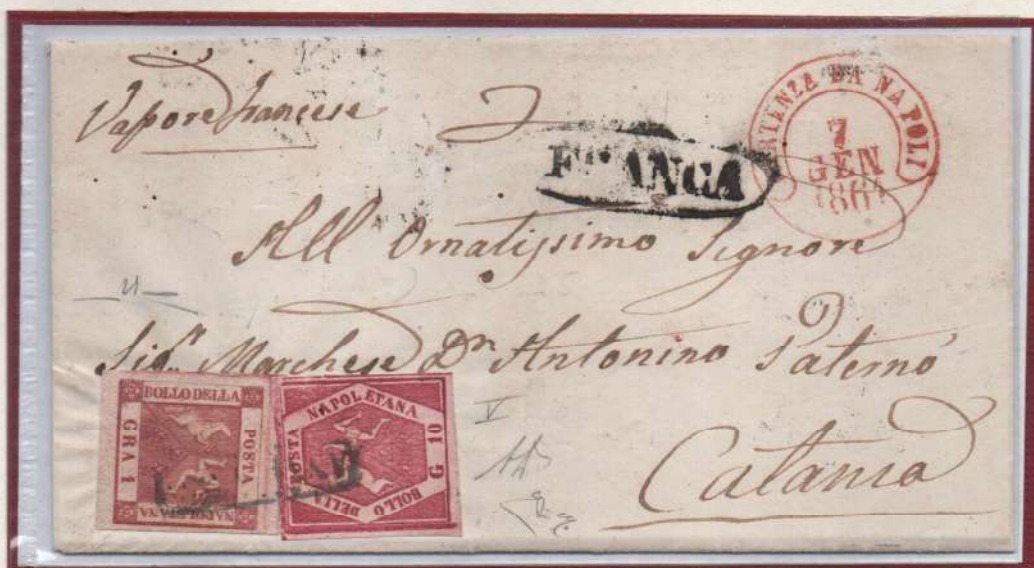 Vapore francese
FRANCA
PARTENZA DA NAPOLI
7
GEN
1861
All Ornatissimo Signore
Sig.r Marchese Dn Antonino Paternò
Catania
BOLLO DELLA
POSTA
NAPOLETANA
GRA 1
BOLLO DELLA POSTA NAPOLETANA
G 10